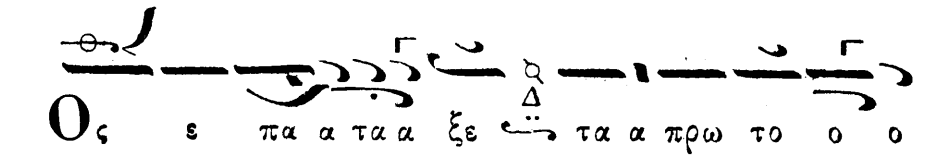 Ος ε πα α τα α ξε Δ τα α πρω το ο ο